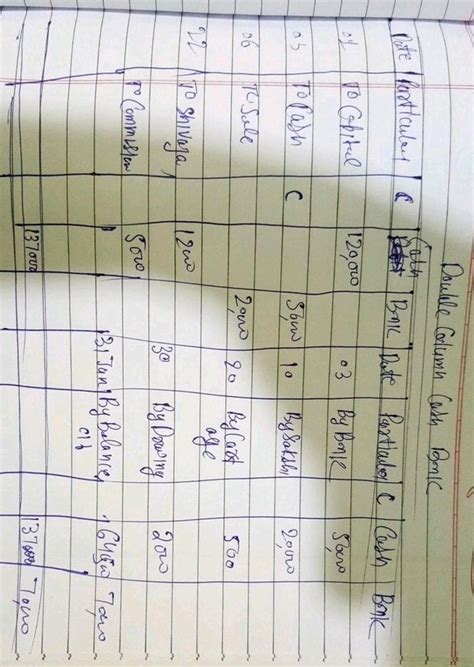 Double Column Cash Bank
Date Particular C Cash Bank Date Particular C Cash Bank
01 To Capital 120,000 03 By Bank 50,000
03 To Cash C 50,000 10 By Sakshi 20,000
06 To Sale 20,000 20 By Cart age 500
22 To Shivaja 12000 30 By Drawing 2000
To Commission 5000 31 Jan By Balance c/d 70,000
137000 137000 70,000